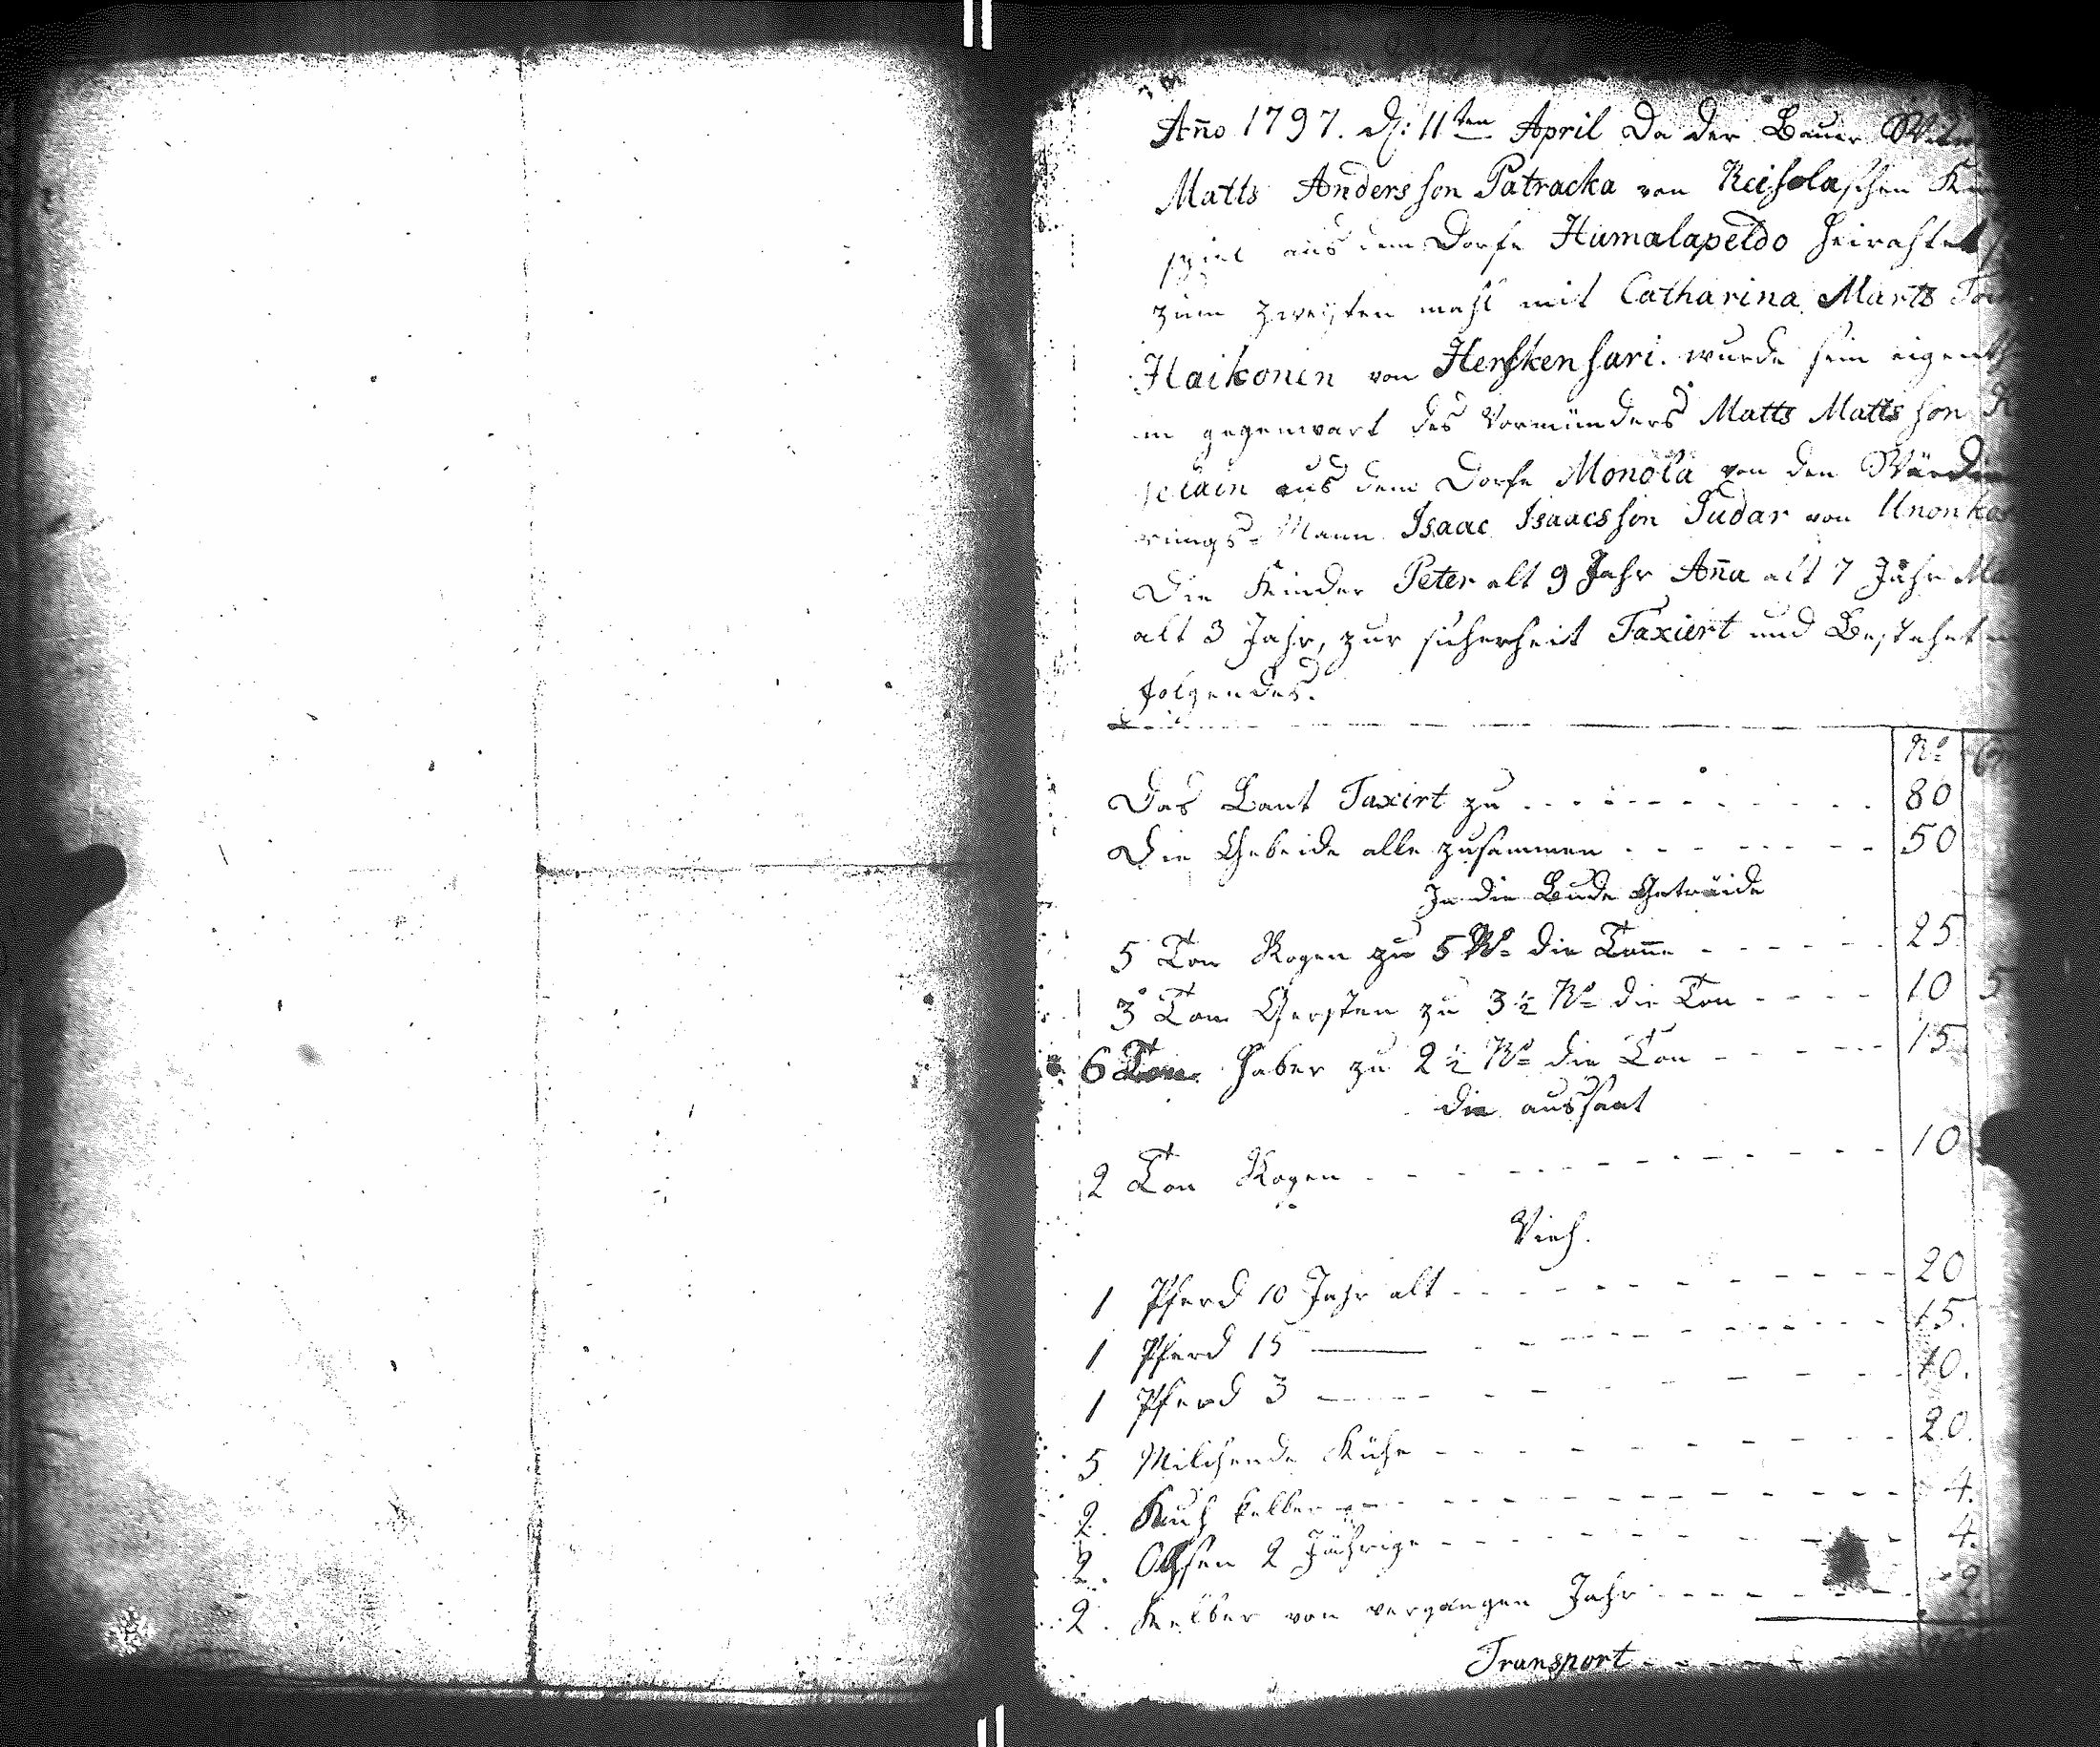 Ańo 1797. d: 11ten April Da der Bauer
Matts Andersson Patracka von Reisolaschen
spiel aus dem Dorfe Humalapeldo heirahtet
zum zweÿten mahl mit Catharina Marts
Haikonen von Hersken sari. wurde sein eigenth
in gegenwart des Vormünders Matts Mattsson
aus dem Dorfe Monola von den Wärde
rungs-Mann Isaac Isaacsson Judar von Unonkos
Die Kinder Peter alt 9 Jahr Ańa alt 7 Jahr Ma
alt 3 Jahr, zur sicherheit Taxiert und Bestehet
folgendes.
Ro
Das Lant Taxirt zu 80
Die Gebeide alle zusammen 50
In die Bude Geträide
5 Ton Rogen zu 5 Ro die Tońe 25
3 Ton Gersten zu 3 1/2 Ro die Ton 10 5
6 Ton Haber zu 2 1/2 Ro die Ton 15
die aussaat
2 Ton Rogen 10
Vieh.
1 Pferd 10 Jahr alt 20
1 Pferd 15 — 15.
1 Pferd 3 — 10.
5 Milchende Kühe 20.
2. Kuh kelber 4.
2. Ochsen 2 Jährige 4.
2. Kelber von vergangen Jahr 2.
Transport